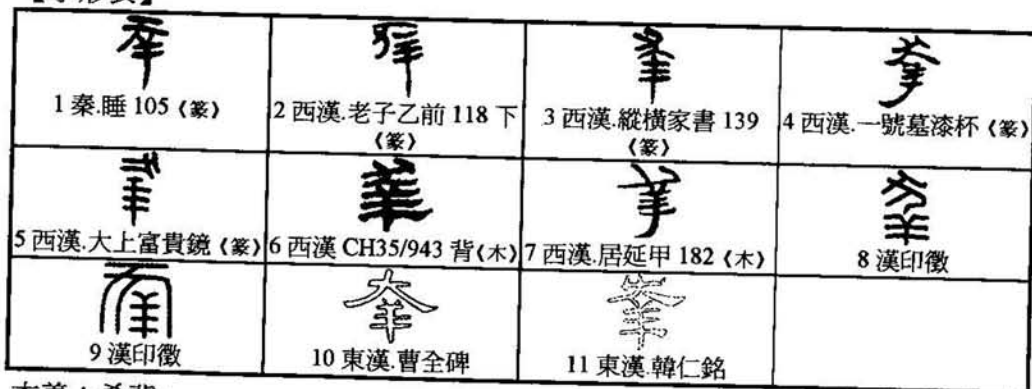 1 秦.睡 105《篆》
2 西漢.老子乙前 118 下《篆》
3 西漢.縱橫家書 139《篆》
4 西漢.一號墓漆杯《篆》
5 西漢.大上富貴鏡《篆》
6 西漢 CH35/943 背《木》
7 西漢.居延甲 182《木》
8 漢印徵
9 漢印徵
10 東漢.曹全碑
11 東漢.韓仁銘